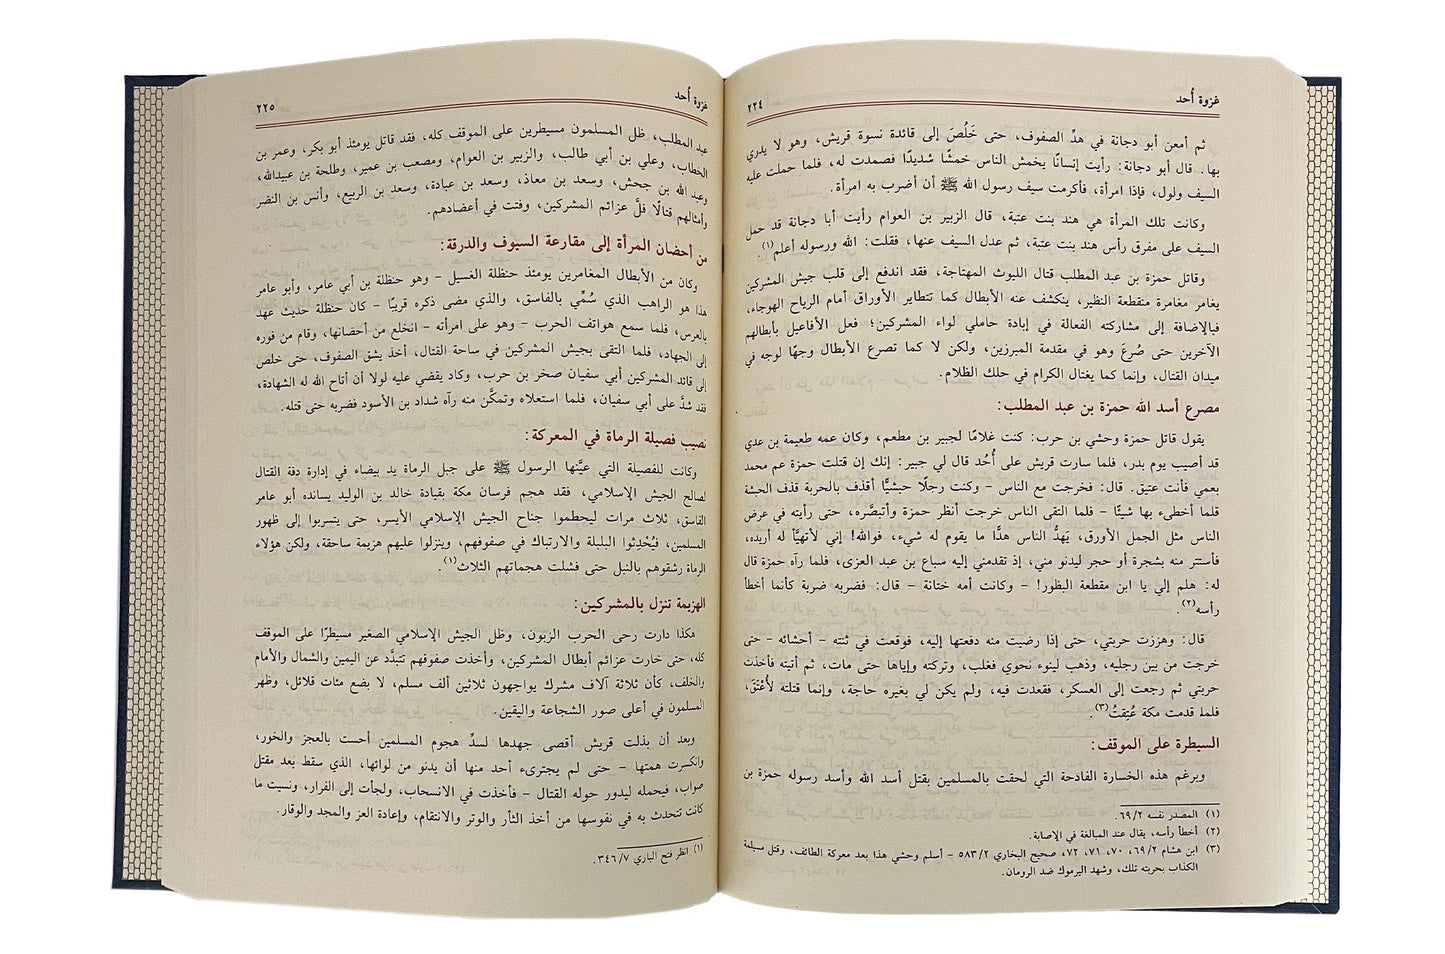 غزوة أُحد
٢٢٤
ثم أمعن أبو دجانة في هدِّ الصفوف، حتى خَلُصَ إلى قائدة نسوة قريش، وهو لا يدري
بها. قال أبو دجانة: رأيت إنسانًا يخمش الناس خمشًا شديدًا فصمدت له، فلما حملت عليه
السيف ولول، فإذا امرأة، فأكرمت سيف رسول الله ﷺ أن أضرب به امرأة.
وكانت تلك المرأة هي هند بنت عتبة، قال الزبير بن العوام رأيت أبا دجانة قد حمل
السيف على مفرق رأس هند بنت عتبة، ثم عدل السيف عنها، فقلت: الله ورسوله أعلم(١).
وقاتل حمزة بن عبد المطلب قتال الليوث المهتاجة، فقد اندفع إلى قلب جيش المشركين
يغامر مغامرة منقطعة النظير، ينكشف عنه الأبطال كما تتطاير الأوراق أمام الرياح الهوجاء،
فبالإضافة إلى مشاركته الفعالة في إبادة حاملي لواء المشركين؛ فعل الأفاعيل بأبطالهم
الآخرين حتى صُرعَ وهو في مقدمة المبرزين، ولكن لا كما تصرع الأبطال وجهًا لوجه في
ميدان القتال، وإنما كما يغتال الكرام في حلك الظلام.
مصرع أسد الله حمزة بن عبد المطلب:
يقول قاتل حمزة وحشي بن حرب: كنت غلامًا لجبير بن مطعم، وكان عمه طعيمة بن عدي
قد أصيب يوم بدر، فلما سارت قريش على أُحُد قال لي جبير: إنك إن قتلت حمزة عم محمد
بعمي فأنت عتيق. قال: فخرجت مع الناس - وكنت رجلًا حبشيًّا أقذف بالحربة قذف الحبشة
قلما أخطىء بها شيئًا - فلما التقى الناس خرجت أنظر حمزة وأتبصَّره، حتى رأيته في عرض
الناس مثل الجمل الأورق، يَهدُّ الناس هدًّا ما يقوم له شيء، فوالله! إني لأتهيَّأ له أريده،
فأستتر منه بشجرة أو حجر ليدنو مني، إذ تقدمني إليه سباع بن عبد العزى، فلما رآه حمزة قال
له: هلم إلي يا ابن مقطعة البظور! - وكانت أمه ختانة - قال: فضربه ضربة كأنما أخطأ
رأسه(٢).
قال: وهززت حربتي، حتى إذا رضيت منه دفعتها إليه، فوقعت في ثنته - أحشائه - حتى
خرجت من بين رجليه، وذهب لينوء نحوي فغلب، وتركته وإياها حتى مات، ثم أتيته فأخذت
حربتي ثم رجعت إلى العسكر، فقعدت فيه، ولم يكن لي بغيره حاجة، وإنما قتلته لأُعْتَقَ،
فلما قدمت مكة عُتِقتُ(٣).
السيطرة على الموقف:
وبرغم هذه الخسارة الفادحة التي لحقت بالمسلمين بقتل أسد الله وأسد رسوله حمزة بن
(١) المصدر نفسه ٦٩/٢.
(٢) أخطأ رأسه، يقال عند المبالغة في الإصابة.
(٣) ابن هشام ٦٩/٢، ٧٠، ٧١، ٧٢، صحيح البخاري ٥٨٣/٢ - أسلم وحشي هذا بعد معركة الطائف، وقتل مسيلمة
الكذاب بحربته تلك، وشهد اليرموك ضد الرومان.
غزوة أُحد
٢٢٥
عبد المطلب، ظل المسلمون مسيطرين على الموقف كله، فقد قاتل يومئذ أبو بكر، وعمر بن
الخطاب، وعلي بن أبي طالب، والزبير بن العوام، ومصعب بن عمير، وطلحة بن عبيدالله،
وعبد الله بن جحش، وسعد بن معاذ، وسعد بن عبادة، وسعد بن الربيع، وأنس بن النضر
وأمثالهم قتالًا فلَّ عزائم المشركين، وفتت في أعضادهم.
من أحضان المرأة إلى مقارعة السيوف والدرقة:
وكان من الأبطال المغامرين يومئذ حنظلة الغسيل - وهو حنظلة بن أبي عامر، وأبو عامر
هذا هو الراهب الذي سُمِّي بالفاسق، والذي مضى ذكره قريبًا - كان حنظلة حديث عهد
بالعرس، فلما سمع هواتف الحرب - وهو على امرأته - انخلع من أحضانها، وقام من فوره
إلى الجهاد، فلما التقى بجيش المشركين في ساحة القتال، أخذ يشق الصفوف، حتى خلص
إلى قائد المشركين أبي سفيان صخر بن حرب، وكاد يقضي عليه لولا أن أتاح الله له الشهادة،
فقد شدَّ على أبي سفيان، فلما استعلاه وتمكَّن منه رآه شداد بن الأسود فضربه حتى قتله.
نصيب فصيلة الرماة في المعركة:
وكانت للفصيلة التي عيَّنها الرسول ﷺ على جبل الرماة يد بيضاء في إدارة دفة القتال
لصالح الجيش الإسلامي، فقد هجم فرسان مكة بقيادة خالد بن الوليد يسانده أبو عامر
الفاسق، ثلاث مرات ليحطموا جناح الجيش الإسلامي الأيسر، حتى يتسربوا إلى ظهور
المسلمين، فيُحْدِثوا البلبلة والارتباك في صفوفهم، وينزلوا عليهم هزيمة ساحقة، ولكن هؤلاء
الرماة رشقوهم بالنبل حتى فشلت هجماتهم الثلاث(١).
الهزيمة تنزل بالمشركين:
هكذا دارت رحى الحرب الزبون، وظل الجيش الإسلامي الصغير مسيطرًا على الموقف
كله، حتى خارت عزائم أبطال المشركين، وأخذت صفوفهم تتبدَّد عن اليمين والشمال والأمام
والخلف، كأن ثلاثة آلاف مشرك يواجهون ثلاثين ألف مسلم، لا بضع مئات قلائل، وظهر
المسلمون في أعلى صور الشجاعة واليقين.
وبعد أن بذلت قريش أقصى جهدها لسدِّ هجوم المسلمين أحست بالعجز والخور،
وانكسرت همتها - حتى لم يجترىء أحد منها أن يدنو من لوائها، الذي سقط بعد مقتل
صواب، فيحمله ليدور حوله القتال - فأخذت في الانسحاب، ولجأت إلى الفرار، ونسيت ما
كانت تتحدث به في نفوسها من أخذ الثأر والوتر والانتقام، وإعادة العز والمجد والوقار.
(١) انظر فتح الباري ٣٤٦/٧.